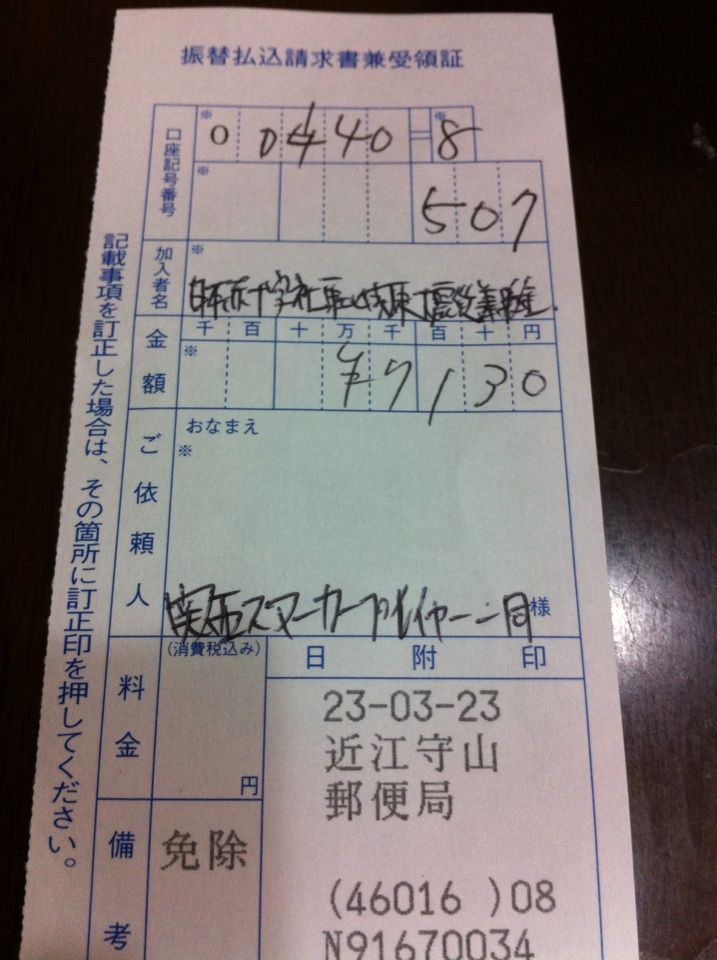 振替払込請求書兼受領証
口座記号番号
※ 0 0 1 4 0 ※ 8
※ 507
加入者名
※
日本赤十字社 東日本大震災義援金
金額
千 百 十 万 千 百 十 円
※ ¥7130
ご依頼人
おなまえ
※
関西ズマーカープレイヤー一同 様
料金
(消費税込み)
円
日附印
23-03-23
近江守山
郵便局
(46016 )08
N91670034
備考
免除
記載事項を訂正した場合は、その箇所に訂正印を押してください。